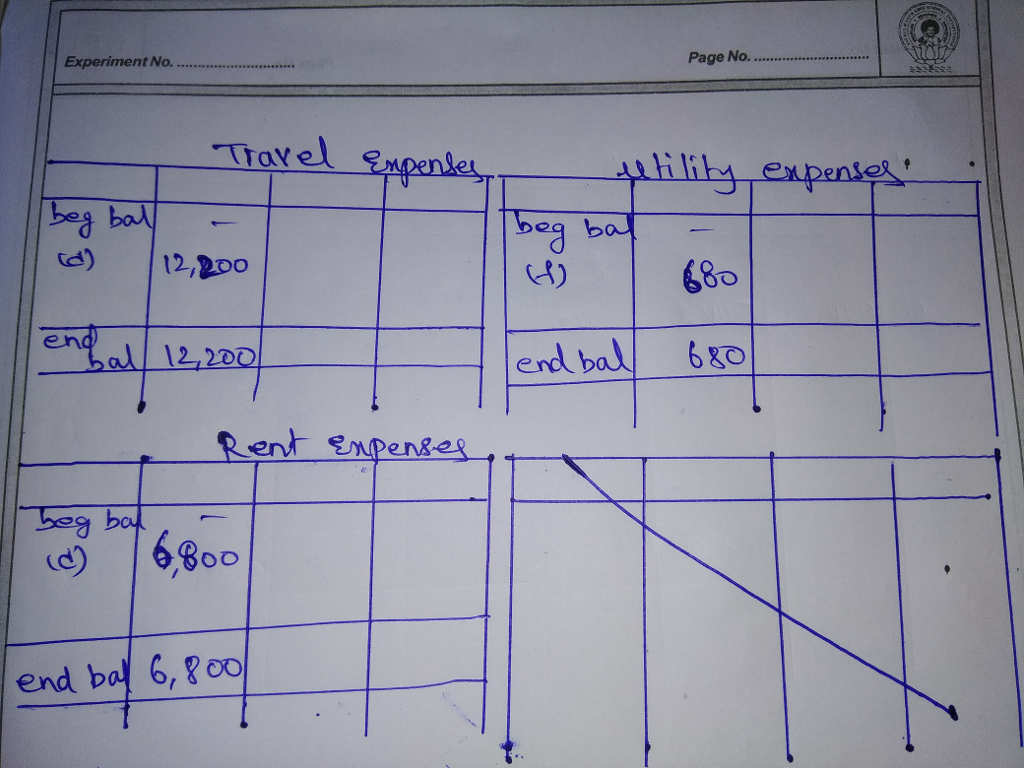 Experiment No. ............................ Page No. ............................
Travel Expenses
beg bal –
(d) 12,200
end
bal 12,200
utility expenses
beg bal –
(f) 680
end bal 680
Rent Expenses
beg bal –
(d) 6,800
end bal 6,800